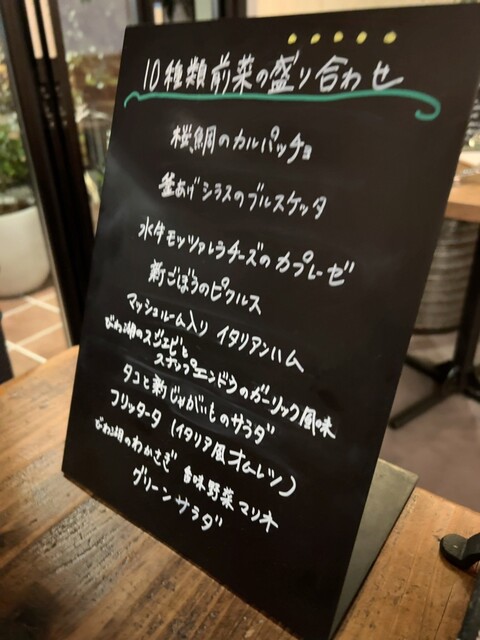 10種類前菜の盛り合わせ
桜鯛のカルパッチョ
釜あげシラスのブルスケッタ
水牛モッツァレラチーズのカプレーゼ
新ごぼうのピクルス
マッシュルーム入り イタリアンハム
びわ湖のスジエビと
スナップエンドウのガーリック風味
タコと新じゃがいものサラダ
フリッタータ (イタリア風オムレツ)
びわ湖のわかさぎ 香味野菜マリネ
グリーンサラダ